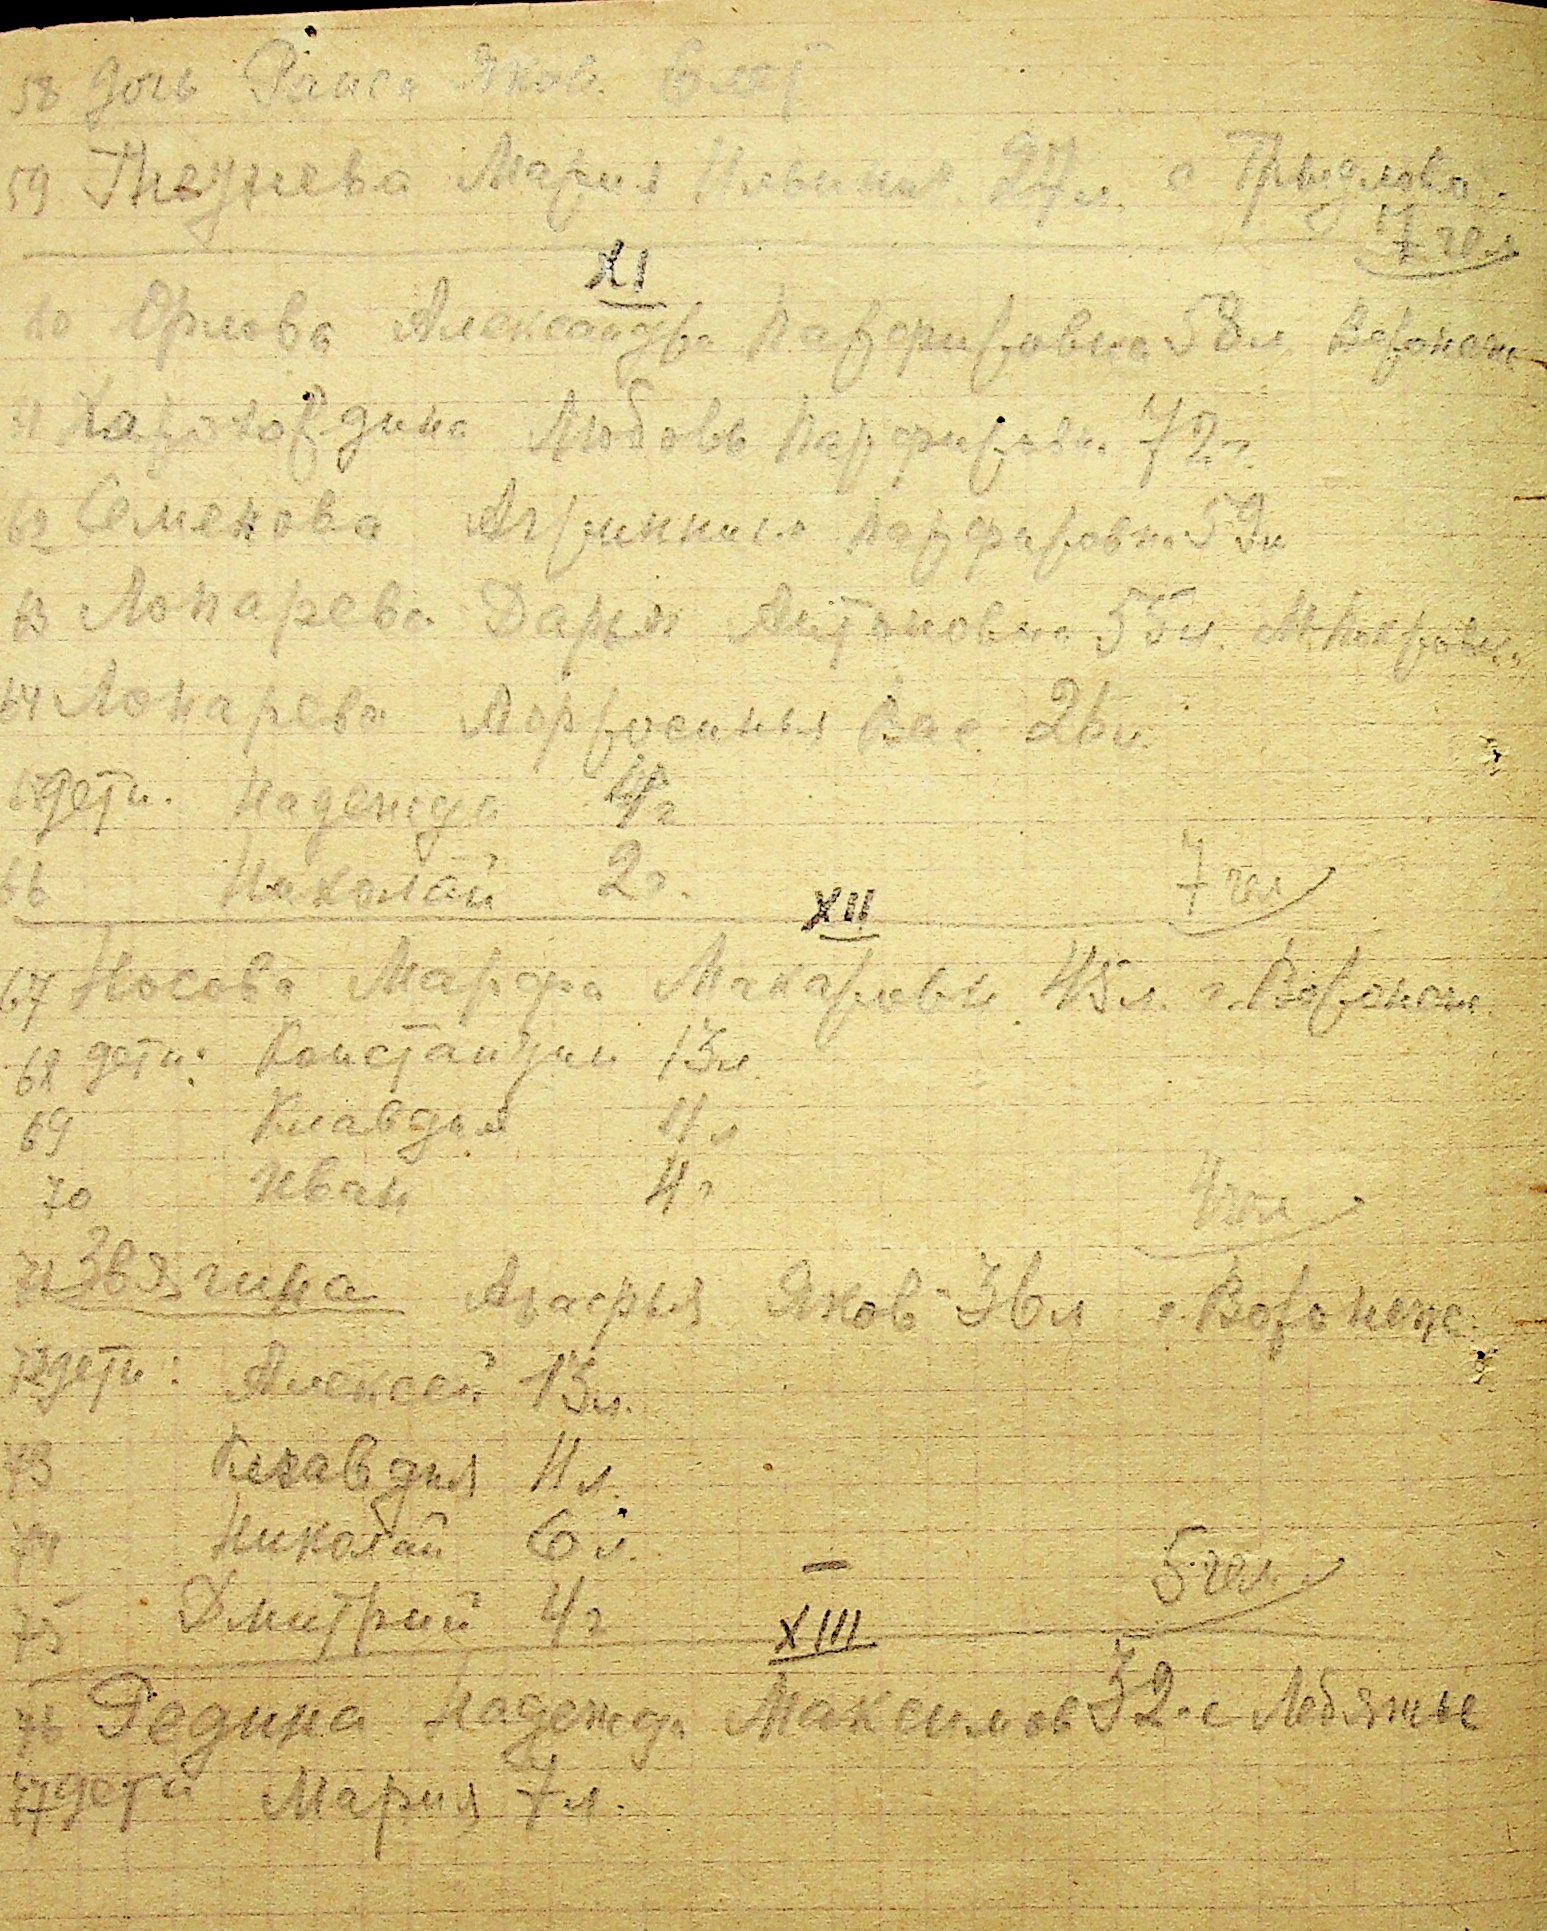 58 дочь Раиса Яков. 6 лет
59 Мария Ильинич. 27 л. с
7 чел
XI
60 Орлова Александра Парфирьовна 58 л. Воронеж
61 Любовь Парфирьовн. 72 г.
62 Семенова Агрипина Парфирьовн. 59 л
63 Лопарева Дарья Антоновна 55 л.
64 Лопарева Афросинья Вас. 26 л.
65 дети. Надежда 4 г
66 Николай 2 г. 7 чел
XII
67 Носова Марфа Макаровн. 45 л. г. Воронеж
68 дети: Констанции 13 л.
69 Клавдия 11 л
70 Иван 4 г
4 чел
71 Звягина Агафья Яков 36 л г Воронеж
72 дети: Алексей 13 л.
73 Клавдия 11 л.
74 Николай 6 л. 5 чел.
75 Дмитрий 4 г
XIII
76 Редина Надежда Максимов 32. с Лебяжье
77 дети Мария 7 л.